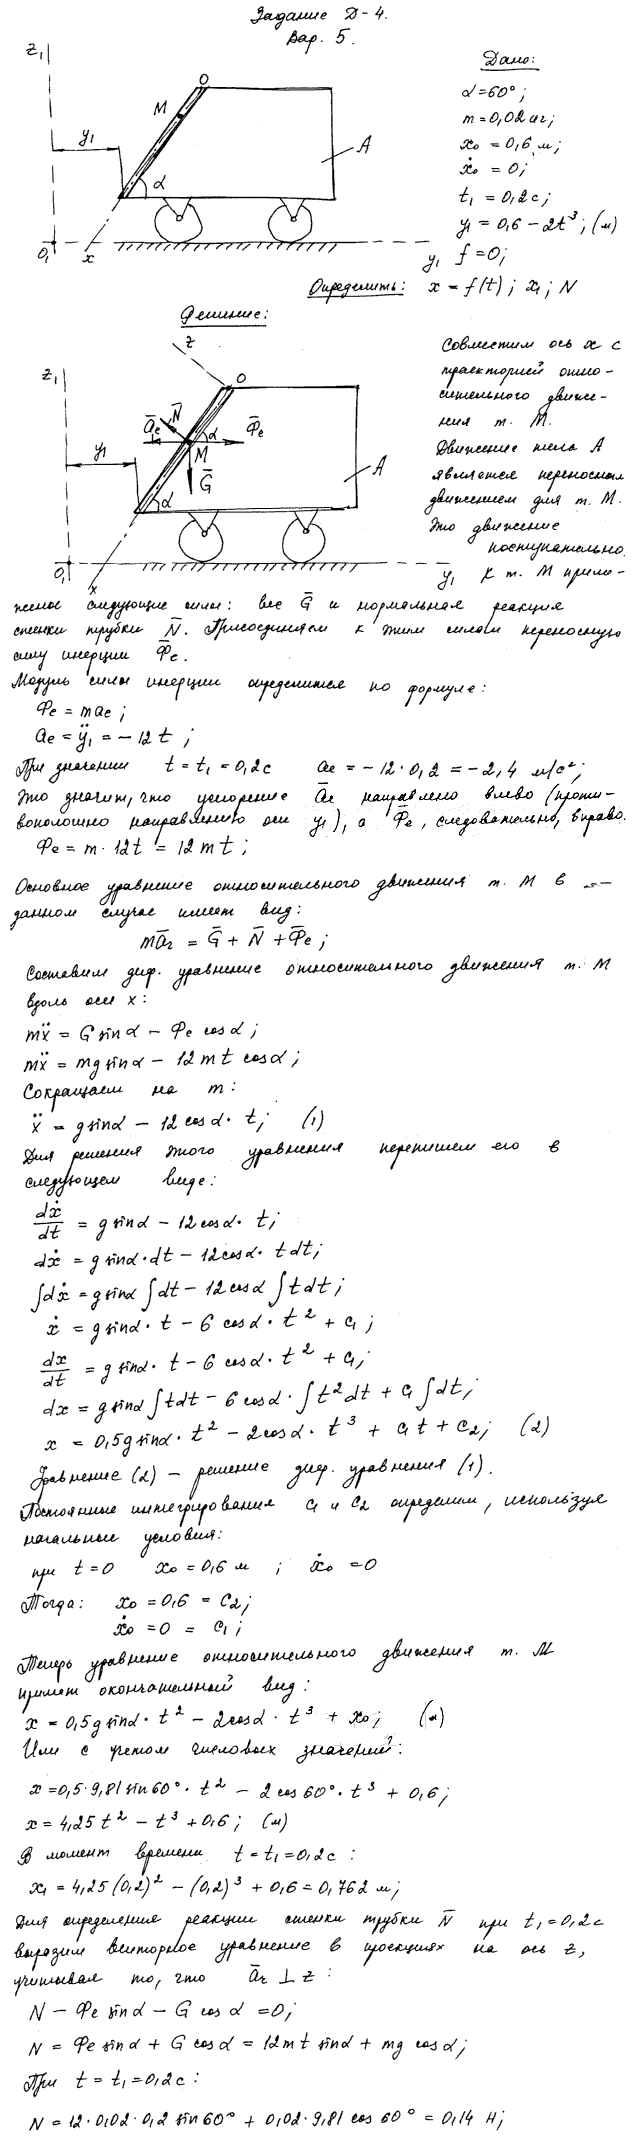 Задание Д-4.
Вар. 5.
Дано:
α=60°;
m=0,02 кг;
x₀=0,6 м;
ẋ₀=0;
t₁=0,2 с;
y₁=0,6-2t³; (м)
f=0;
Определить: x=f(t); x₁; N
z₁
O
M
y₁
A
α
O₁
x
y₁
Решение:
z
z₁
O
N̄
āe
Φ̄e
α
M
y₁
Ḡ
A
α
O₁
x
y₁
Совместим ось x с
траекторией отно-
сительного движе-
ния т. М.
Движение тела А
является переносным
движением для т. М.
Это движение
поступательно.
К т. М прило-
женные следующие силы: вес Ḡ и нормальная реакция
стенки трубки N̄. Присоединяем к этим силам переносную
силу инерции Φ̄e.
Модуль силы инерции определится по формуле:
Φe = mae;
ae = ÿ₁ = -12t;
При значении t=t₁=0,2с ae = -12·0,2 = -2,4 м/с²;
Это значит, что ускорение āe направлено влево (проти-
воположно направлению оси y₁), а Φ̄e, следовательно, вправо.
Φe = m·12t = 12mt;
Основное уравнение относительного движения т. М в
данном случае имеет вид:
mār = Ḡ + N̄ + Φ̄e;
Составим диф. уравнение относительного движения т. М
вдоль оси x:
mẍ = G sinα - Φe cosα;
mẍ = mg sinα - 12mt cosα;
Сокращаем на m:
ẍ = g sinα - 12cosα· t; (1)
Для решения этого уравнения перепишем его в
следующем виде:
dẋ/dt = g sinα - 12cosα· t;
dẋ = g sinα·dt - 12cosα· tdt;
∫dẋ = g sinα ∫dt - 12cosα ∫tdt;
ẋ = g sinα· t - 6 cosα· t² + C₁;
dx/dt = g sinα· t - 6 cosα· t² + C₁;
dx = g sinα ∫tdt - 6 cosα· ∫t²dt + C₁∫dt;
x = 0,5g sinα· t² - 2cosα· t³ + C₁t + C₂; (2)
Уравнение (2) - решение диф. уравнения (1).
Постоянные интегрирования C₁ и C₂ определим, используя
начальные условия:
при t=0 x₀=0,6 м ; ẋ₀=0
Тогда: x₀=0,6 = C₂;
ẋ₀=0 = C₁;
Теперь уравнение относительного движения т. М
примет окончательный вид:
x = 0,5g sinα· t² - 2cosα· t³ + x₀; (м)
Или с учетом числовых значений:
x=0,5·9,81 sin60°· t² - 2 cos60°· t³ + 0,6;
x = 4,25t² - t³ + 0,6; (м)
В момент времени t=t₁=0,2с:
x₁ = 4,25(0,2)² - (0,2)³ + 0,6 = 0,762 м;
Для определения реакции стенки трубки N̄ при t₁=0,2с
выразим векторное уравнение в проекциях на ось z,
учитывая то, что ār ⊥ z:
N - Φe sinα - G cosα = 0;
N = Φe sinα + G cosα = 12mt sinα + mg cosα;
При t=t₁=0,2с:
N = 12·0,02·0,2 sin60° + 0,02·9,81 cos60° = 0,14 Н;